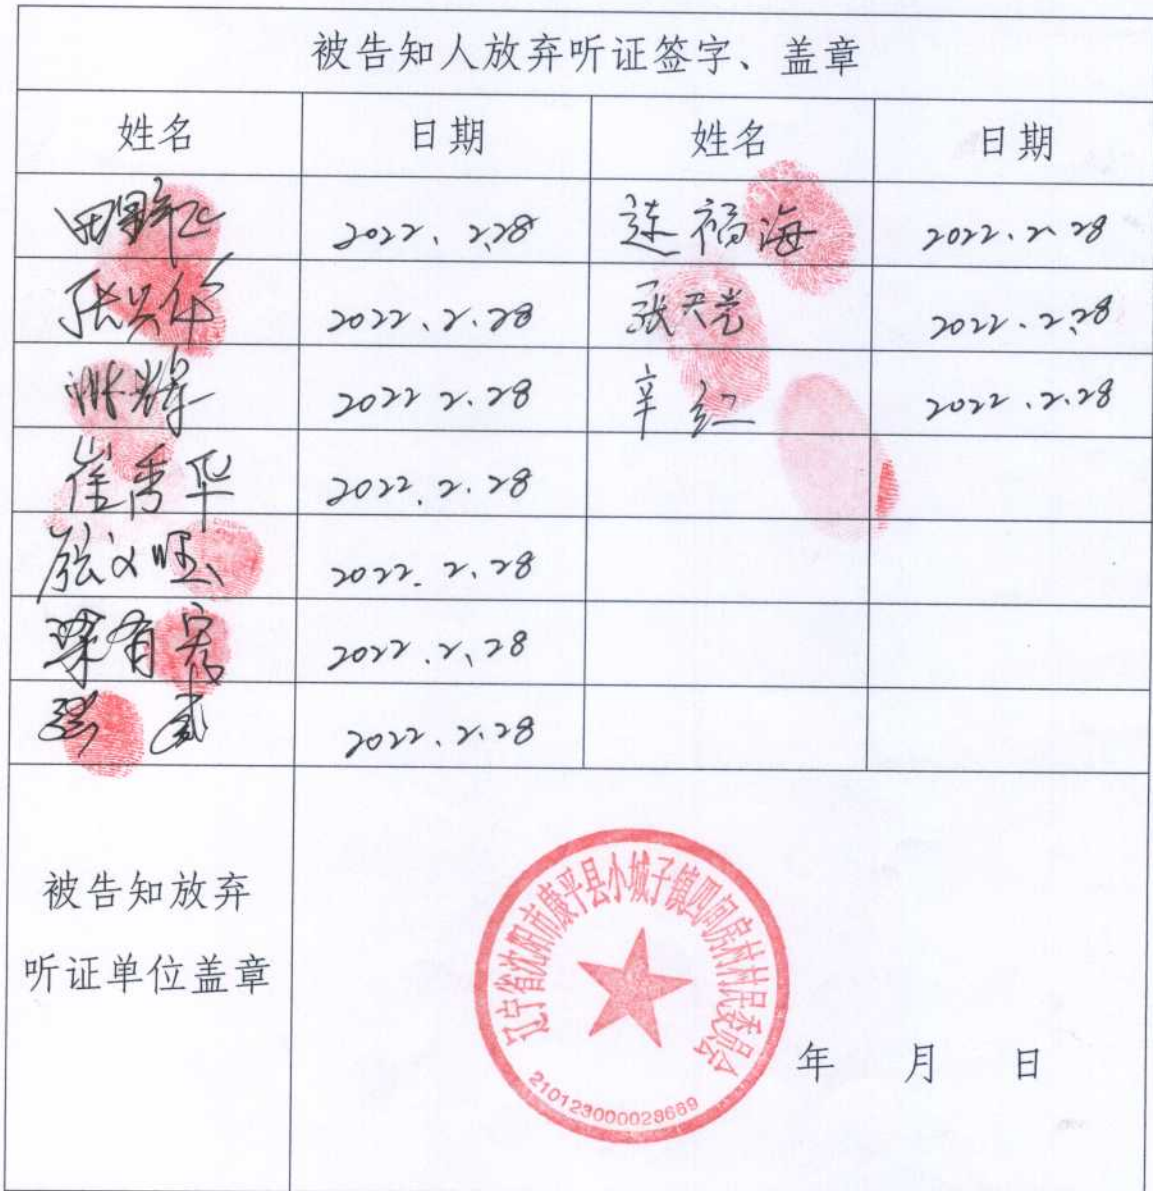 被告知人放弃听证签字、盖章
姓名 日期 姓名 日期
2022.2.28 连福海 2022.2.28
张兴华 2022.2.28 张天光 2022.2.28
2022.2.28 辛红 2022.2.28
崔秀华 2022.2.28
张文旺 2022.2.28
梁有富 2022.2.28
2022.2.28
被告知放弃
听证单位盖章
辽宁省沈阳市康平县小城子镇四间房村村民委员会
210123000028669
年 月 日